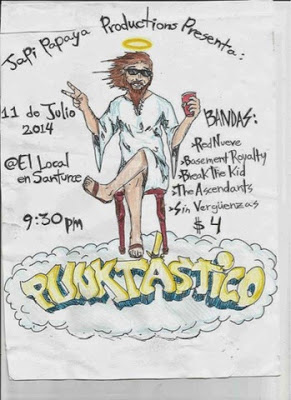 Japi Papaya Productions Presenta:
11 de Julio
2014
@El Local
en Santurce
9:30 pm
BANDAS:
>Red Nueve
>Basement Royalty
>Break The Kid
>The Ascendants
>Sin Vergüenzas
$4
PUNKTÁSTICO